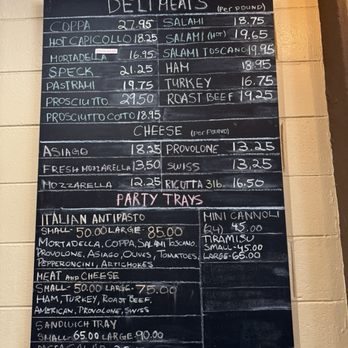 DELI MEATS (PER POUND)
COPPA 27.95
HOT CAPICOLLO 18.25
MORTADELLA 16.95
SPECK 21.25
PASTRAMI 19.75
PROSCIUTTO 29.50
PROSCIUTTO COTTO 18.95
SALAMI 18.75
SALAMI (HOT) 19.65
SALAMI TOSCANO 19.95
HAM 18.95
TURKEY 16.75
ROAST BEEF 19.25
CHEESE (PER POUND)
ASIAGO 18.25
FRESH MOZZARELLA 13.50
MOZZARELLA 12.25
PROVOLONE 13.25
SWISS 13.25
RICUTTA 3lb. 16.50
PARTY TRAYS
ITALIAN ANTIPASTO
SMALL- 50.00 LARGE- 85.00
MORTADELLA, COPPA, SALAMI TOSCANO,
PROVOLONE, ASIAGO, OLIVES, TOMATOES,
PEPPERONCINI, ARTICHOKES
MEAT AND CHEESE
SMALL- 50.00 LARGE- 75.00
HAM, TURKEY, ROAST BEEF,
AMERICAN, PROVOLONE, SWISS
SANDWICH TRAY
SMALL- 65.00 LARGE- 90.00
MINI CANNOLI
(24) 45.00
TIRAMISU
SMALL- 45.00
LARGE- 65.00